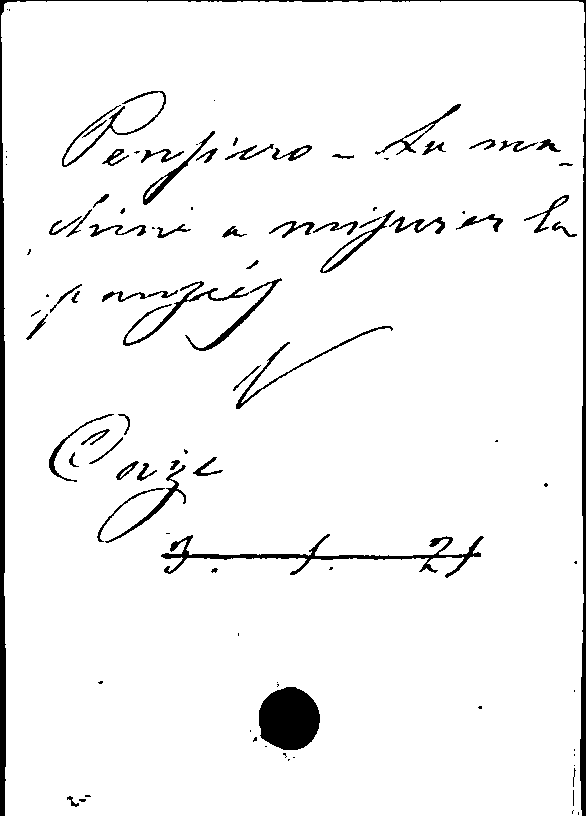 Pensiero - La ma-
chine a mesurer la
pensée
V
Onze
3. 1. 21